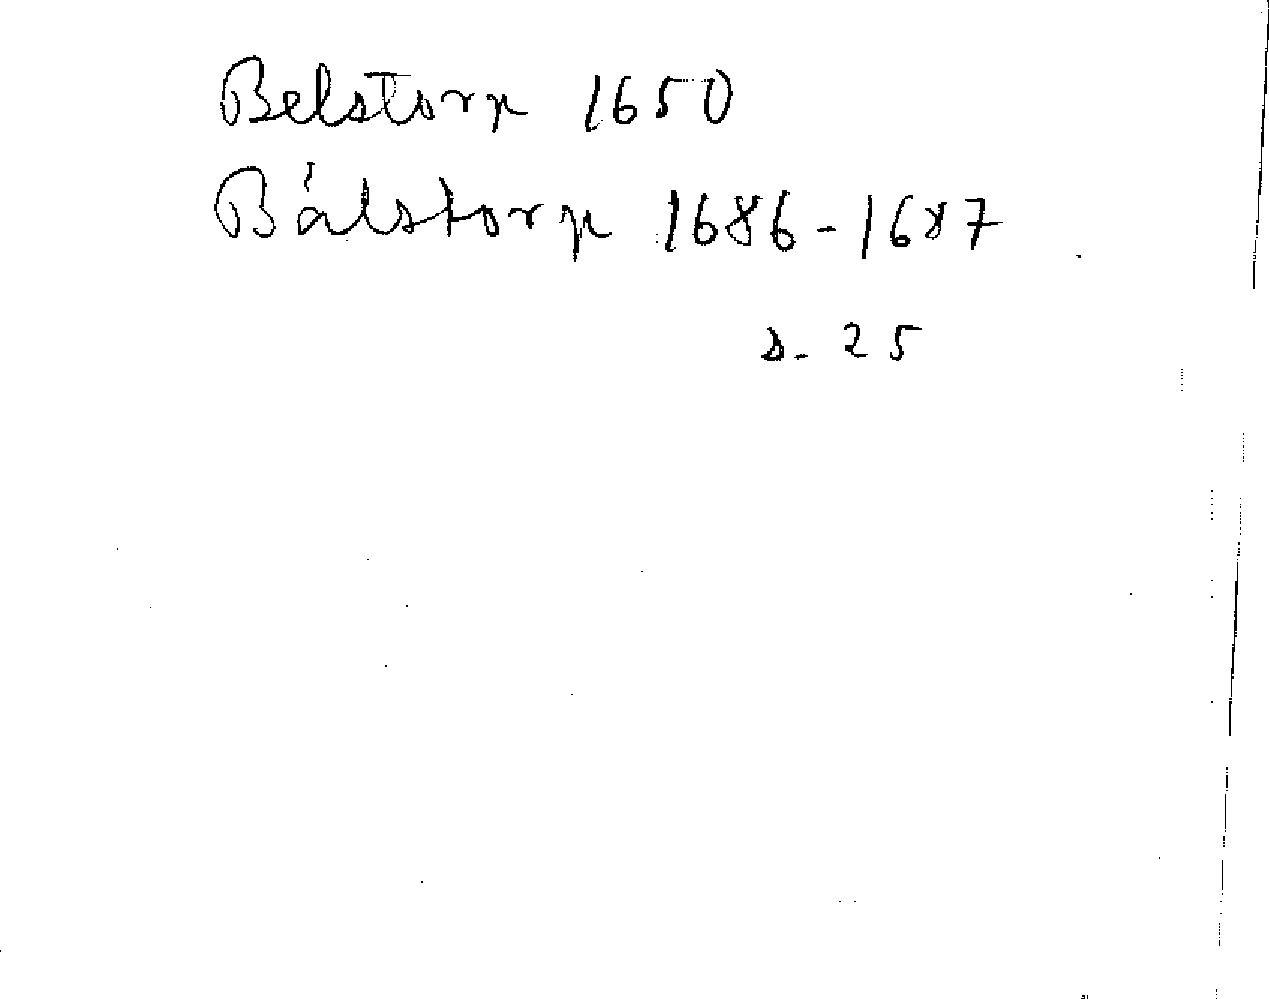 Belstorp 1650
Bálstorp 1686-1687
s. 25